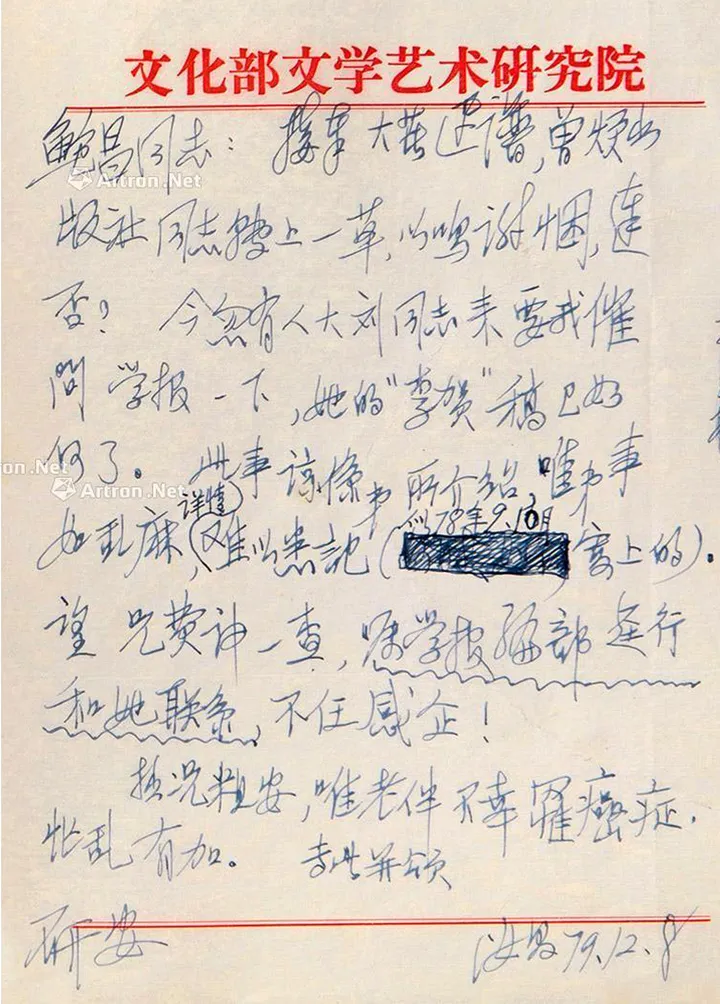 文化部文学艺术研究院
鲍昌同志：接奉大著年谱，曾烦出
版社同志转上一草，以鸣谢悃，达
否？今忽有人大刘同志来要我催
问学报一下，她的“李贺”稿已如
何了。此事该系弟所介绍，唯弟事
详情 似78年9.10月
如乱麻，难以悉记（寄上的）．
望兄费神一查，嘱学报编部迳行
和她联系，不任感企！
拙况粗安，唯老伴不幸罹癌症．
忙乱有加。专此并颂
研安
汝昌79.12.8
Artron.Net
on.Net
Artron.Net